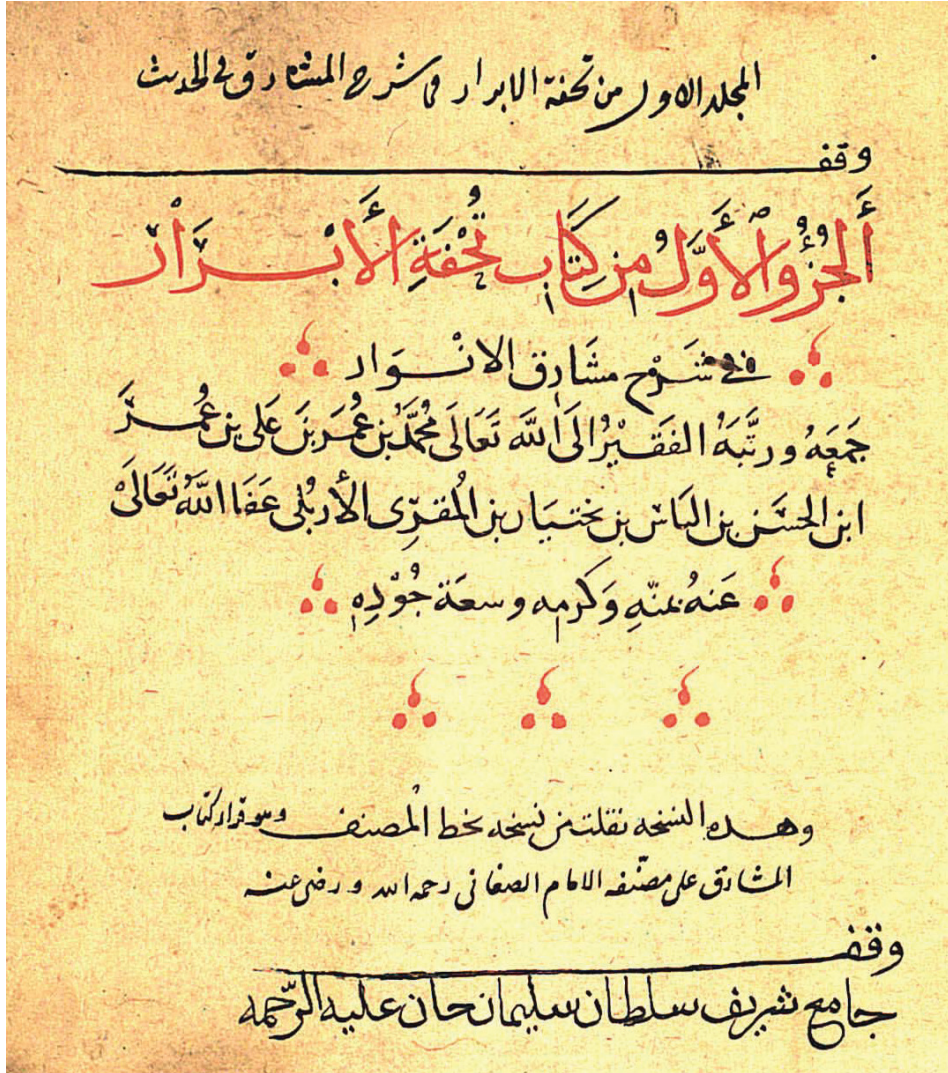 المجلد الاول من تحفة الابرار في شرح المشارق في الحديث
وقف
أَلْجُزْؤُ الْأَوَّلُ مِن كِتَابِ تُحْفَةِ الأَبْرَارْ
في شَرْحِ مشَارِق الانْوَار
جَمَعَهُ ورتَّبَهُ الفَقِيْرُ الَى اللَّه تَعَالَى مُحمَّدُ بْن عُمَرَ بْن عَلى بن عُمَرَ
ابن الحسَن بن الياس بن بختيَار بن الْمُقرِّى الأَرْبُلى عَفَا اللَّهُ تَعَالَىْ
عَنهُ بمَنّهِ وَكَرمِه وسعَة جُوْدِهِ
وهذه النسخه نقلت من نسخه بخط الْمصنف وهو قرأ كتاب
المشارق على مصنّفه الامام الصغانى رحمه الله ورضى عنه
وقف
جامع شريف سلطان سليمان خان عليه الرّحمه